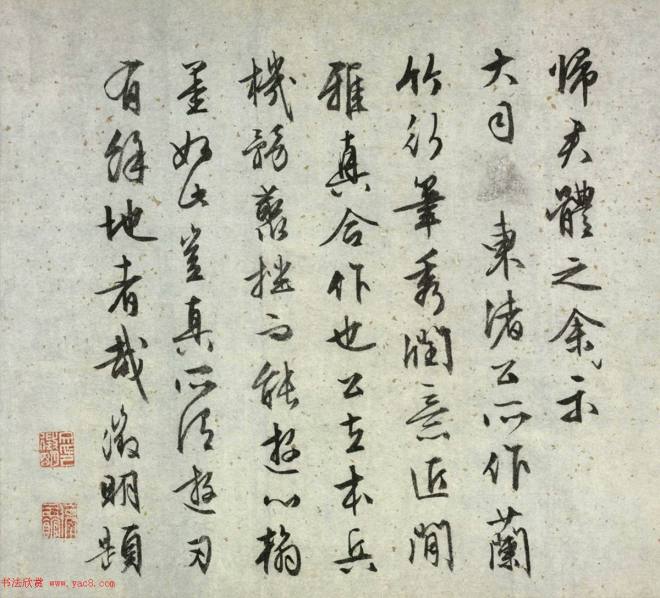 師夫體之余示
大司 東渚公所作蘭
竹行筆秀潤意近閒
雅真合作也公在本兵
機務叢挫而能游心翰
墨如此豈真所謂游刃
有餘地者哉徵明題
书法欣赏 www.yac8.com